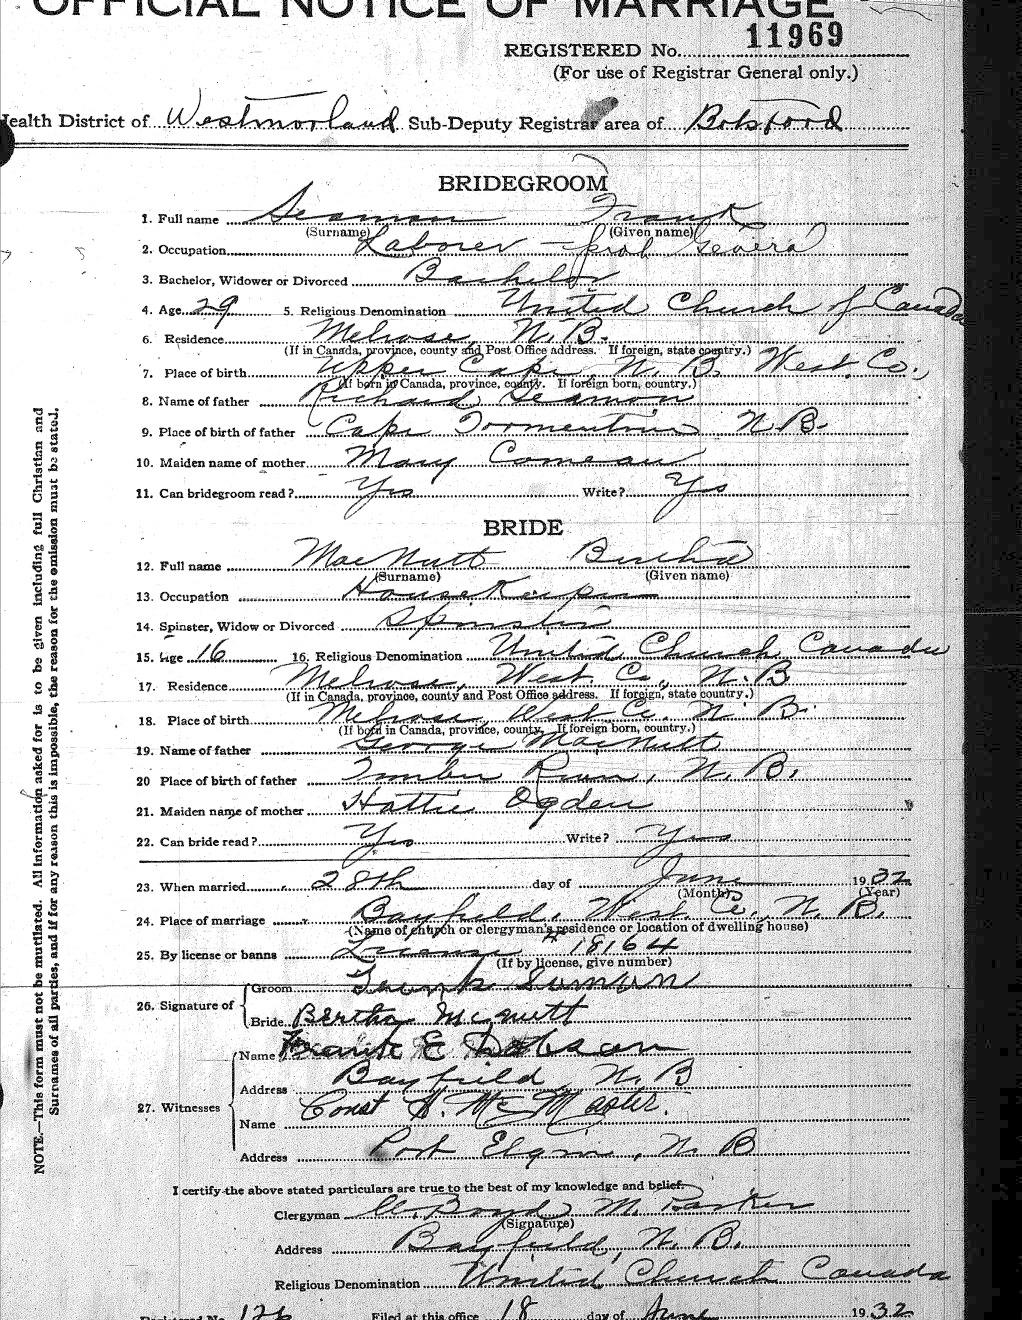 OFFICIAL NOTICE OF MARRIAGE
REGISTERED No. 11969
(For use of Registrar General only.)
Health District of Westmorland Sub-Deputy Registrar area of Botsford
BRIDEGROOM
1. Full name Seaman Frank
(Surname) (Given name)
2. Occupation Laborer
3. Bachelor, Widower or Divorced Bachelor
4. Age 29 5. Religious Denomination United Church of Canada
6. Residence Melrose, N.B.
(If in Canada, province, county and Post Office address. If foreign, state country.)
7. Place of birth Upper Cape, N. B. West. Co.,
(If born in Canada, province, county. If foreign born, country.)
8. Name of father Richard Seamon
9. Place of birth of father Cape Tormentine N.B.
10. Maiden name of mother Mary Comeau
11. Can bridegroom read? Yes Write? Yes
BRIDE
12. Full name MacNutt Bertha
(Surname) (Given name)
13. Occupation Housekeeper
14. Spinster, Widow or Divorced Spinster
15. Age 16 16. Religious Denomination United Church Canada
17. Residence Melrose, West. Co., N. B
(If in Canada, province, county and Post Office address. If foreign, state country.)
18. Place of birth Melrose, West Co. N. B.
(If born in Canada, province, county. If foreign born, country.)
19. Name of father George MacNutt
20 Place of birth of father Timber River, N. B.
21. Maiden name of mother Hattie Ogden
22. Can bride read? Yes Write? Yes
23. When married 28th day of June 1932
(Month) (Year)
24. Place of marriage Bayfield, West. Co., N. B.
(Name of church or clergyman's residence or location of dwelling house)
25. By license or banns License # 18164
(If by license, give number)
26. Signature of
Groom Frank Semon
Bride Bertha Mcnutt
27. Witnesses
Name E Dobson
Address Bayfield, N. B
Name Const H. McMaster.
Address Port Elgin, N. B
I certify the above stated particulars are true to the best of my knowledge and belief.
Clergyman Boyd M. Parker
(Signature)
Address Bayfield, N. B.
Religious Denomination United Church Canada
Registered No. 126 Filed at this office 18 day of June 1932
NOTE.—This form must not be mutilated. All information asked for is to be given including full Christian and
Surnames of all parties, and if for any reason this is impossible, the reason for the omission must be stated.